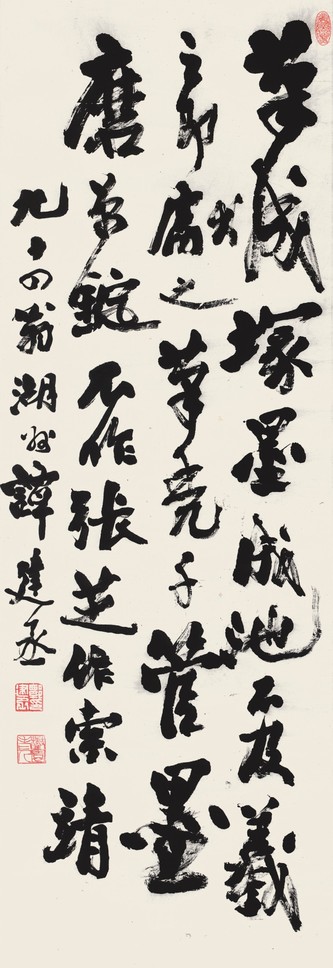 筆成塚墨成池不及羲
之即獻之筆禿千管墨
磨萬錠不作張芝作索靖
九十四翁湖州譚建丞